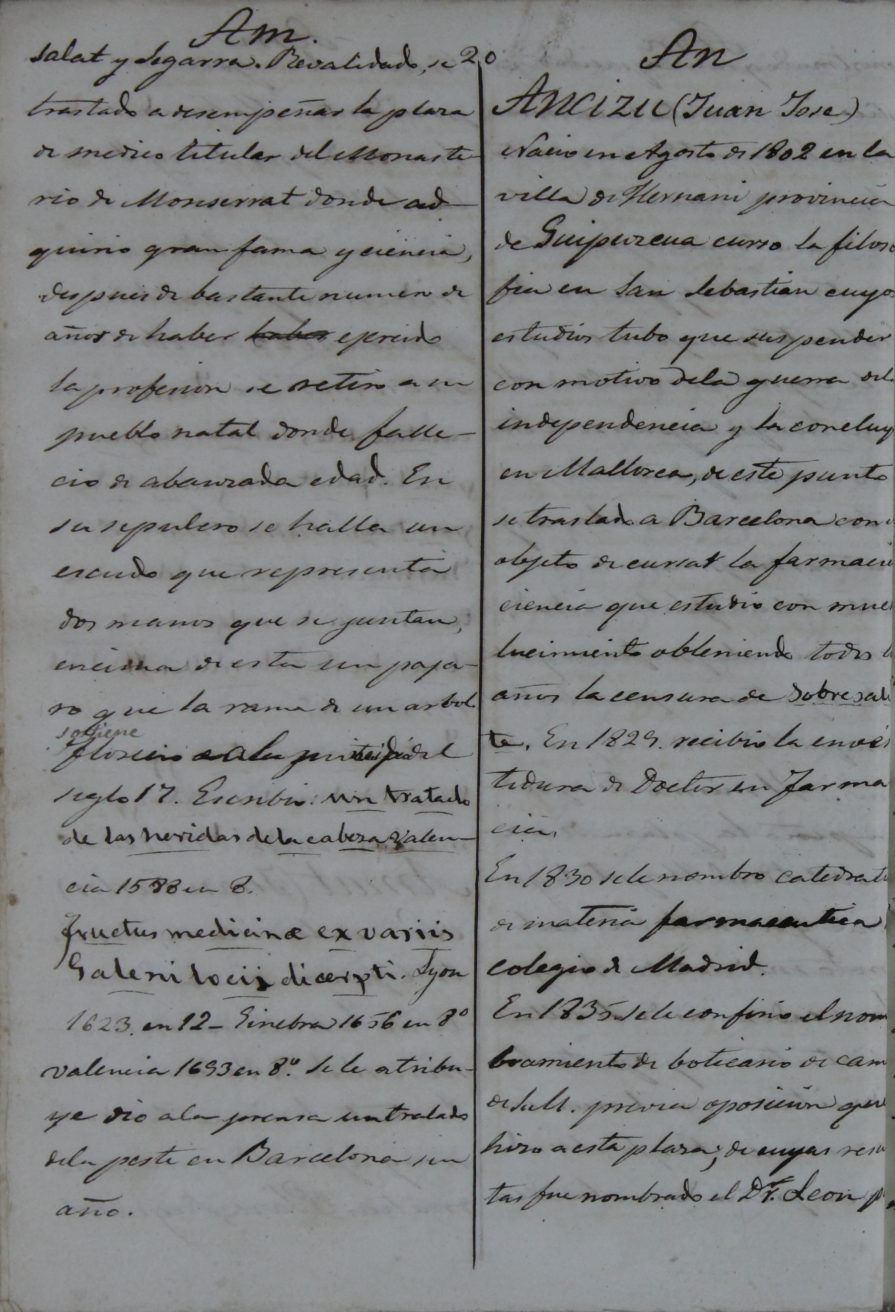 Am.
Salat y Segarra. Revalidado, se
trasladó a desempeñar la plaza
de medico titular del Monaste-
rio de Monserrat donde ad-
quirio gran fama y ciencia,
despues de bastante numero de
años de haber haber ejercido
la profesion se retiro a su
pueblo natal donde falle-
cio de abanzada edad. En
su sepulcro se halla un
escudo que representa
dos manos que se juntan,
encima de esta un paja-
ro que la rama de un arbol
sostiene
florecio a del
siglo 17. Escribio: un tratado
de las heridas de la cabeza Valen-
cia 1588 en 8.
fructus medicinæ ex variis
Galeni locis dicerpti. Lyon
1623. en 12 - Ginebra 1656 en 8º
Valencia 1693 en 8º. Se le atribu-
ye dio a la prensa un tratado
dela peste en Barcelona sin
año.
20
An
ANCIZU (Juan Jose)
Nacio en Agosto de 1802 en la
villa de Hernani provincia
de Guipuzcua curso la filoso
fia en San Sebastian cuyo
estudios tubo que suspender
con motivo dela guerra del
independencia y la concluy
en Mallorca, de este punto
se traslado a Barcelona con
objeto de cursar la farmaci
ciencia que estudio con muc
lucimiento obteniendo todos
años la censura de Sobresali
te. En 1829. recibio la inves
tidura de Doctor en farma
cia.
En 1830 se le nombro catedrati
de materia farmaceutica
colegio de Madrid.
En 1835 se le confirio el nom
bramiento de boticario de cam
de S.M. previa oposicion que
hizo a esta plaza; de cuyas resu
tas fue nombrado el Dr. Leon